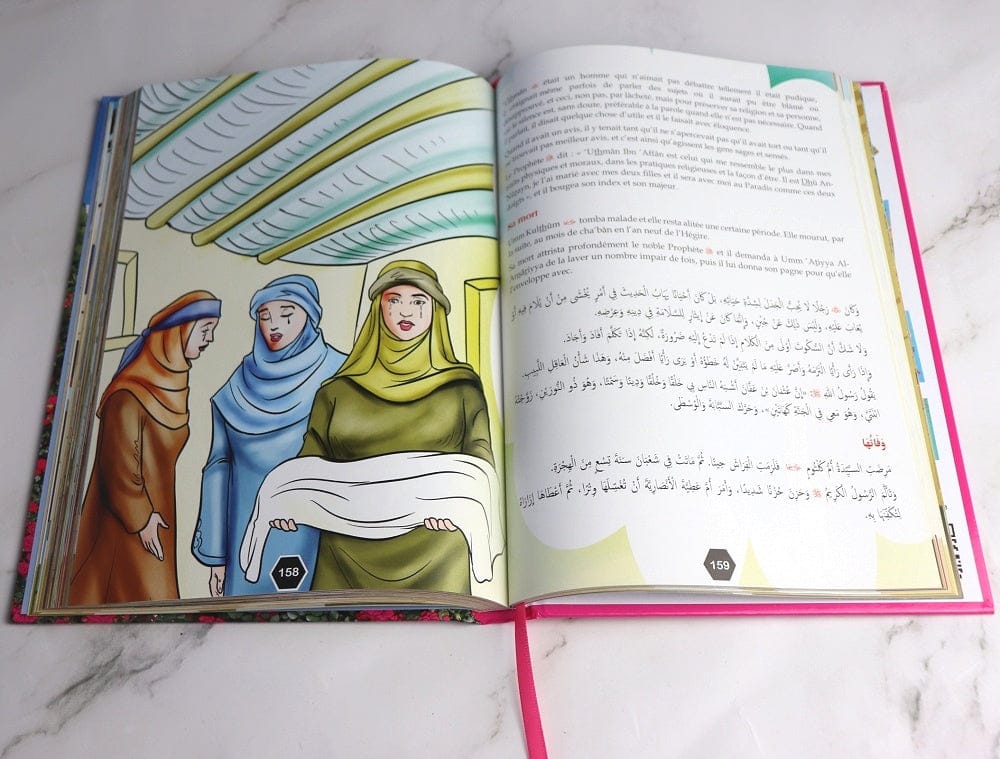 158
‘Uthmân ﷺ était un homme qui n'aimait pas débattre tellement il était pudique,
craignait même parfois de parler des sujets où il aurait pu être blâmé ou
désapprouvé, et ceci, non pas, par lâcheté, mais pour préserver sa religion et sa personne,
car le silence est, sans doute, préférable à la parole quand elle n'est pas nécessaire. Quand
il parlait, il disait quelque chose d'utile et il le faisait avec éloquence.
Quand il avait un avis, il y tenait tant qu'il ne s'apercevait pas qu'il avait tort ou tant qu'il
ne trouvait pas meilleur avis, et c'est ainsi qu'agissent les gens sages et sensés.
Le Prophète ﷺ dit : « ‘Uthmân Ibn ‘Affân est celui qui me ressemble le plus dans mes
traits physiques et moraux, dans les pratiques religieuses et la façon d'être. Il est Dhû An-
Nûrayn, je l'ai marié avec mes deux filles et il sera avec moi au Paradis comme ces deux
doigts », et il bougea son index et son majeur.
Sa mort
Umm Kulthûm tomba malade et elle resta alitée une certaine période. Elle mourut, par
la suite, au mois de cha‘bân en l'an neuf de l'Hégire.
Sa mort attrista profondément le noble Prophète ﷺ et il demanda à Umm ‘Atiyya Al-
Ansâriyya de la laver un nombre impair de fois, puis il lui donna son pagne pour qu'elle
l'enveloppe avec.
وَكَانَ رَجُلًا لَا يُحِبُّ الْجَدَلَ لِشِدَّةِ حَيَائِهِ، بَلْ كَانَ أَحْيَانًا يَهَابُ الْحَدِيثَ فِي أَمْرٍ يَخْشَى مِنْ أَنْ يُلَامَ فِيهِ أَوْ
يُعَابَ عَلَيْهِ، وَلَيْسَ ذَلِكَ عَنْ جُبْنٍ، وَإِنَّمَا كَانَ عَنْ إِيثَارٍ لِلسَّلَامَةِ فِي دِينِهِ وَعِرْضِهِ.
وَلَا شَكَّ أَنَّ السُّكُوتَ أَوْلَى مِنَ الْكَلَامِ إِذَا لَمْ تَدْعُ إِلَيْهِ ضَرُورَةٌ، لَكِنَّهُ إِذَا تَكَلَّمَ أَفَادَ وَأَجَادَ.
وَإِذَا رَأَى رَأْيًا الْتَزَمَهُ وَأَصَرَّ عَلَيْهِ مَا لَمْ يَتَبَيَّنْ لَهُ خَطَؤُهُ أَوْ يَرَى رَأْيًا أَفْضَلَ مِنْهُ، وَهَذَا شَأْنُ الْعَاقِلِ اللَّبِيبِ.
يَقُولُ رَسُولُ اللهِ ﷺ: «إِنَّ عُثْمَانَ بْنَ عَفَّانَ أَشْبَهُ النَّاسِ بِي خَلْقًا وَخُلُقًا وَدِينًا وَسَمْتًا، وَهُوَ ذُو النُّورَيْنِ، زَوَّجْتُهُ
ابْنَتَيَّ، وَهُوَ مَعِي فِي الْجَنَّةِ كَهَاتَيْنِ»، وَحَرَّكَ السَّبَّابَةَ وَالْوُسْطَى.
وَفَاتُهَا
مَرِضَتِ السَّيِّدَةُ أُمُّ كُلْثُومٍ فَلَزِمَتِ الْفِرَاشَ حِينًا، ثُمَّ مَاتَتْ فِي شَعْبَانَ سَنَةَ تِسْعٍ مِنَ الْهِجْرَةِ.
وَتَأَلَّمَ الرَّسُولُ الْكَرِيمُ ﷺ وَحَزِنَ حُزْنًا شَدِيدًا، وَأَمَرَ أُمَّ عَطِيَّةَ الْأَنْصَارِيَّةَ أَنْ تُغَسِّلَهَا وِتْرًا، ثُمَّ أَعْطَاهَا إِزَارَهُ
لِتُكَفِّنَهَا بِهِ.
159